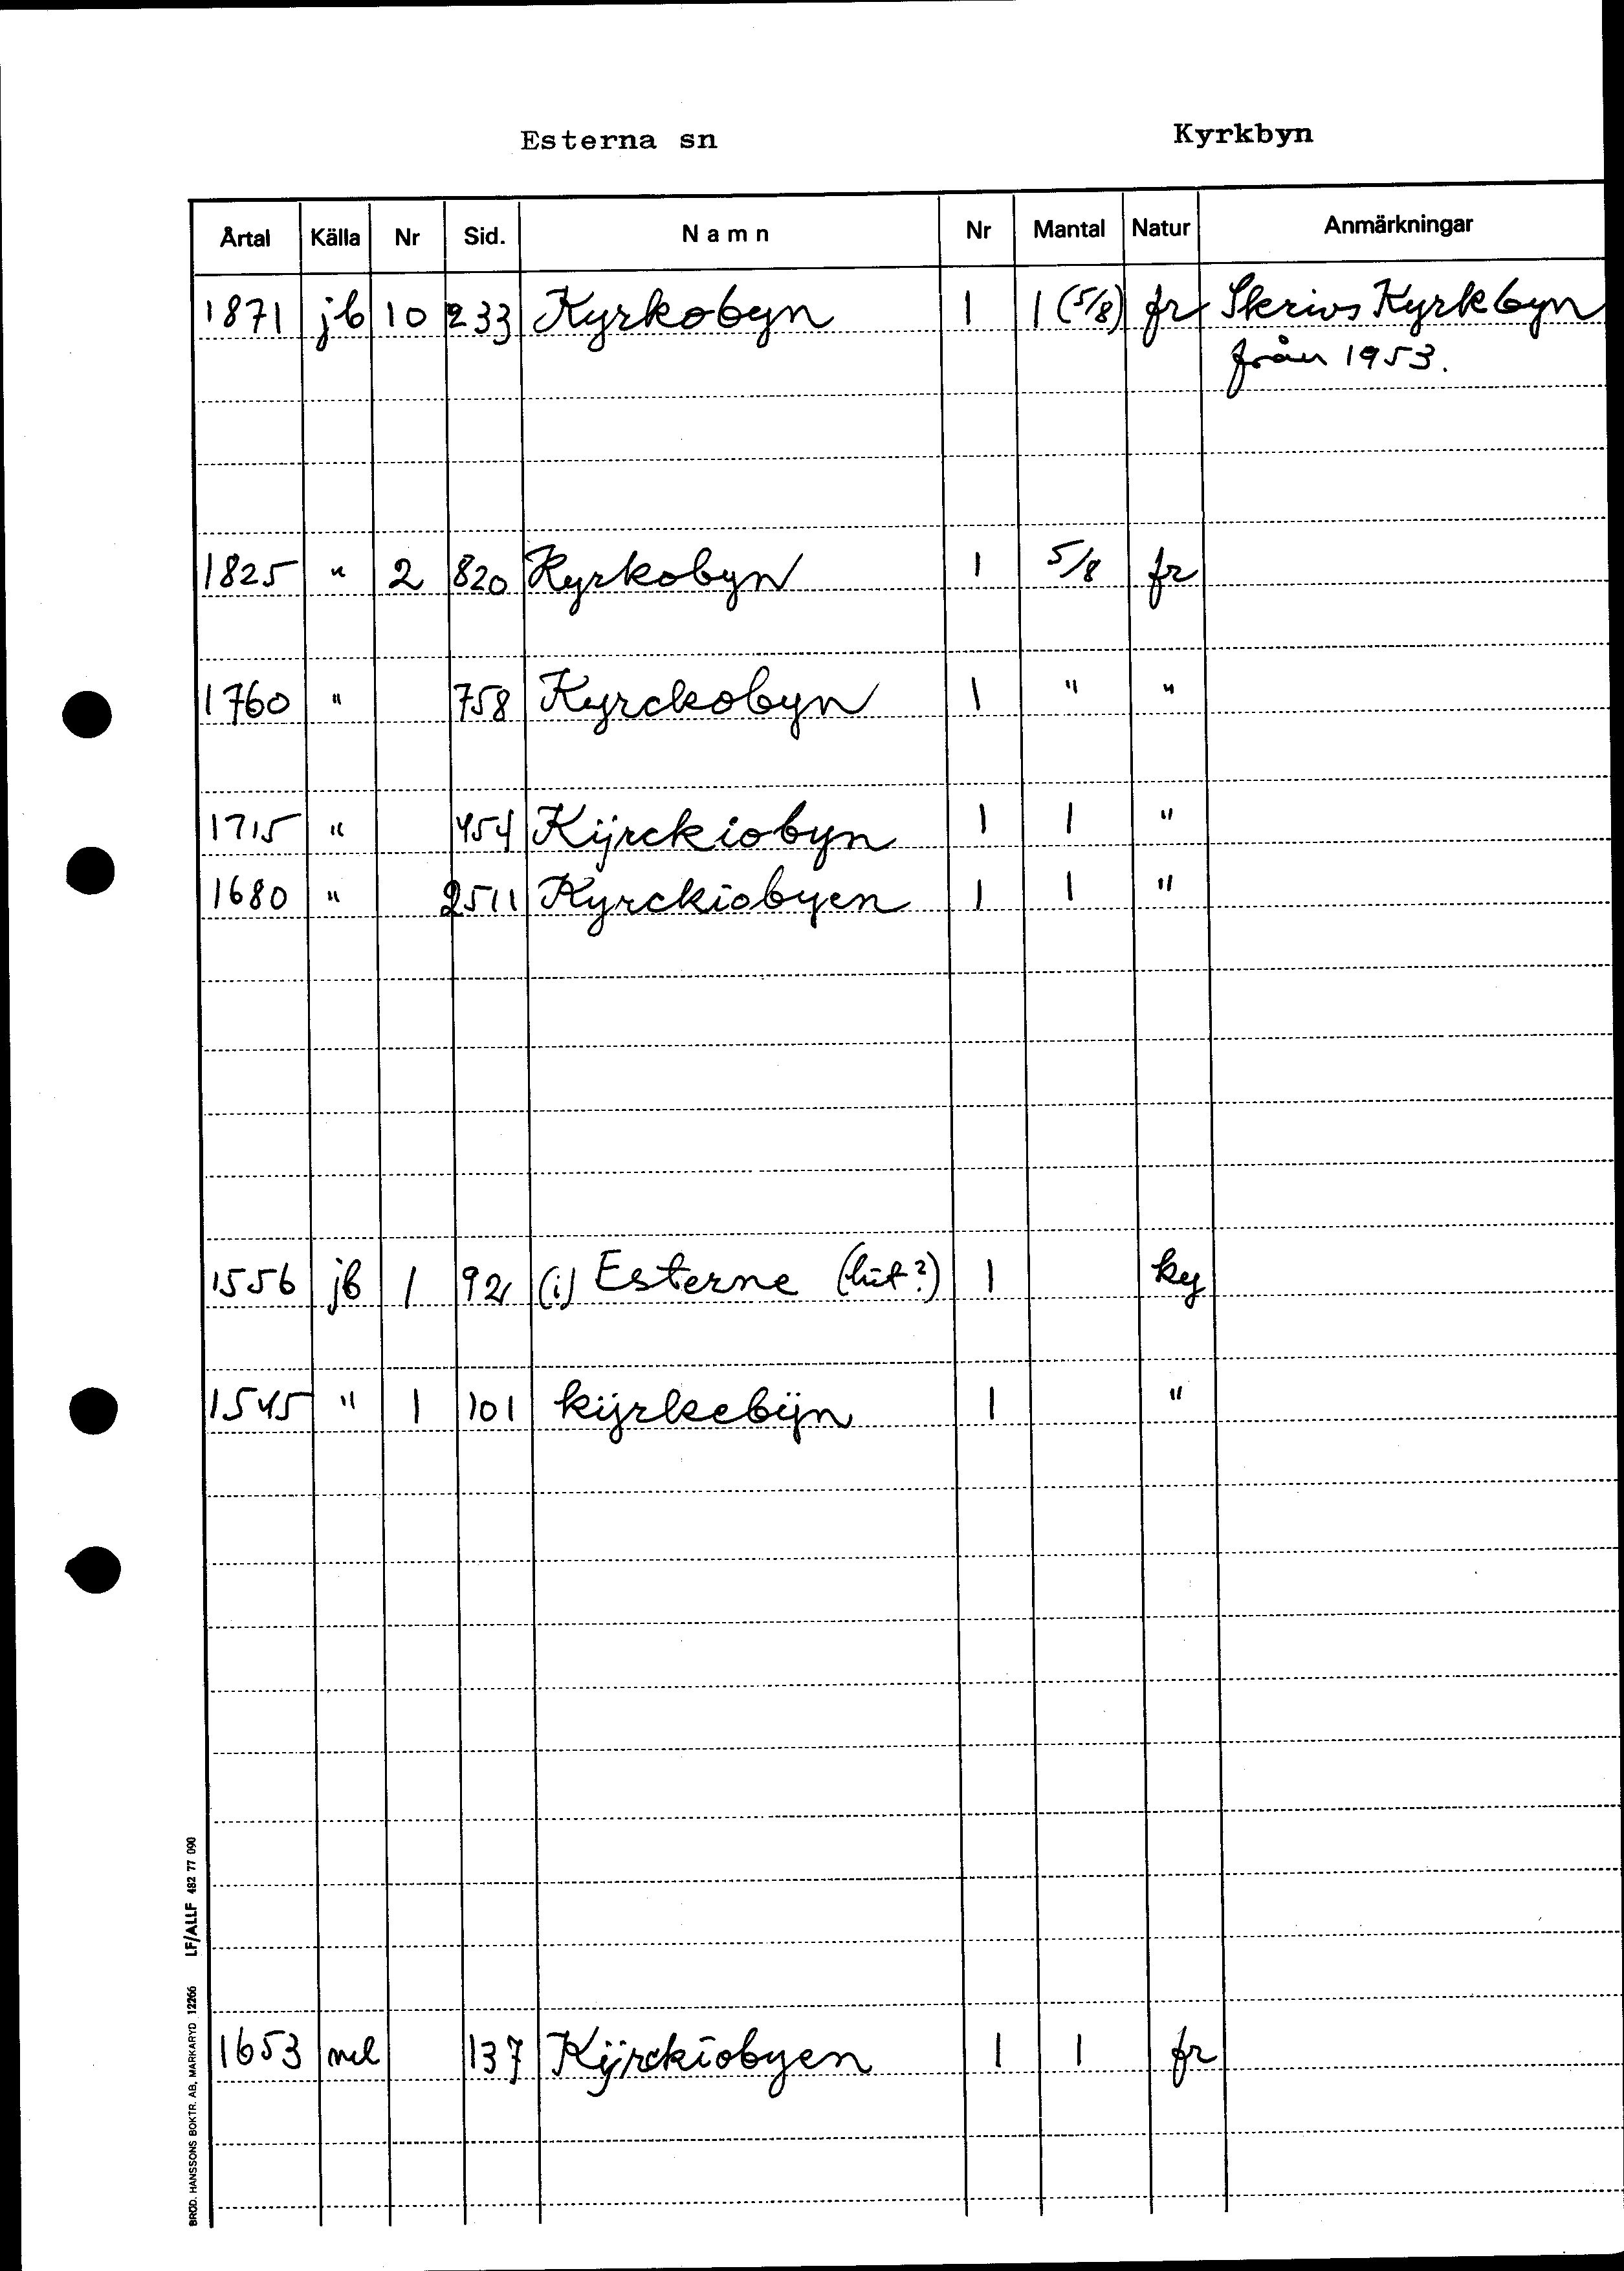 Esterna sn Kyrkbyn
Årtal Källa Nr Sid. Namn Nr Mantal Natur Anmärkningar
1871 jb 10 233 Kyrkobyn 1 1 (5/8) fr Skrivs Kyrkbyn
från 1953.
1825 " 2 820 Kyrkobyn 1 5/8 fr
1760 " 758 Kyrckobyn 1 " "
1715 " 454 Kÿrckiobyn 1 1 "
1680 " 2511 Kyrckiobyen 1 1 "
1556 jb 1 (i) Esterne 1 ky
1545 " 1 101 kÿrkebÿn 1 "
1653 ml 137 Kÿrckiobyen 1 1 fr
BRÖD. HANSSONS BOKTR. AB, MARKARYD 12266 LF/ALLF 482 77 090